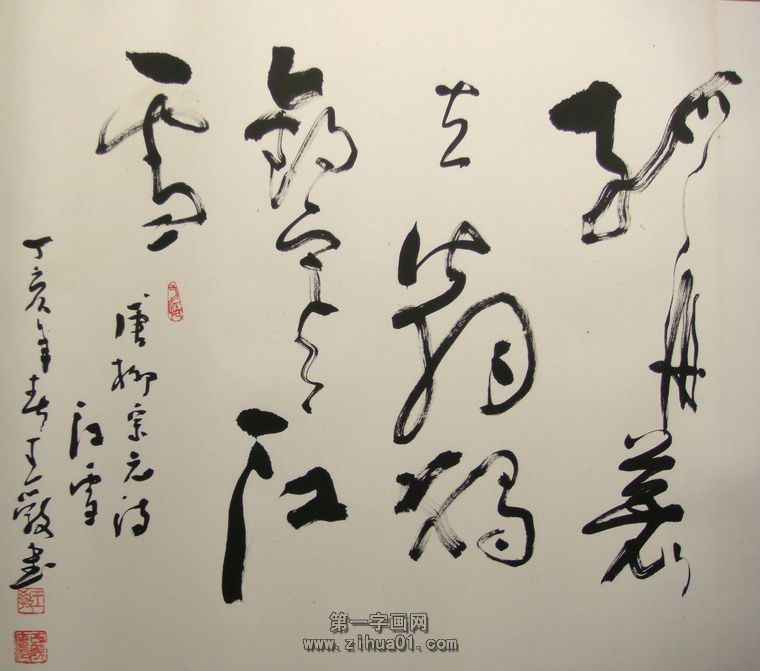 孤舟蓑
笠翁獨
釣寒江
雪
唐柳宗元詩
江雪
丁亥年春王書
第一字画网
www.zihua01.com